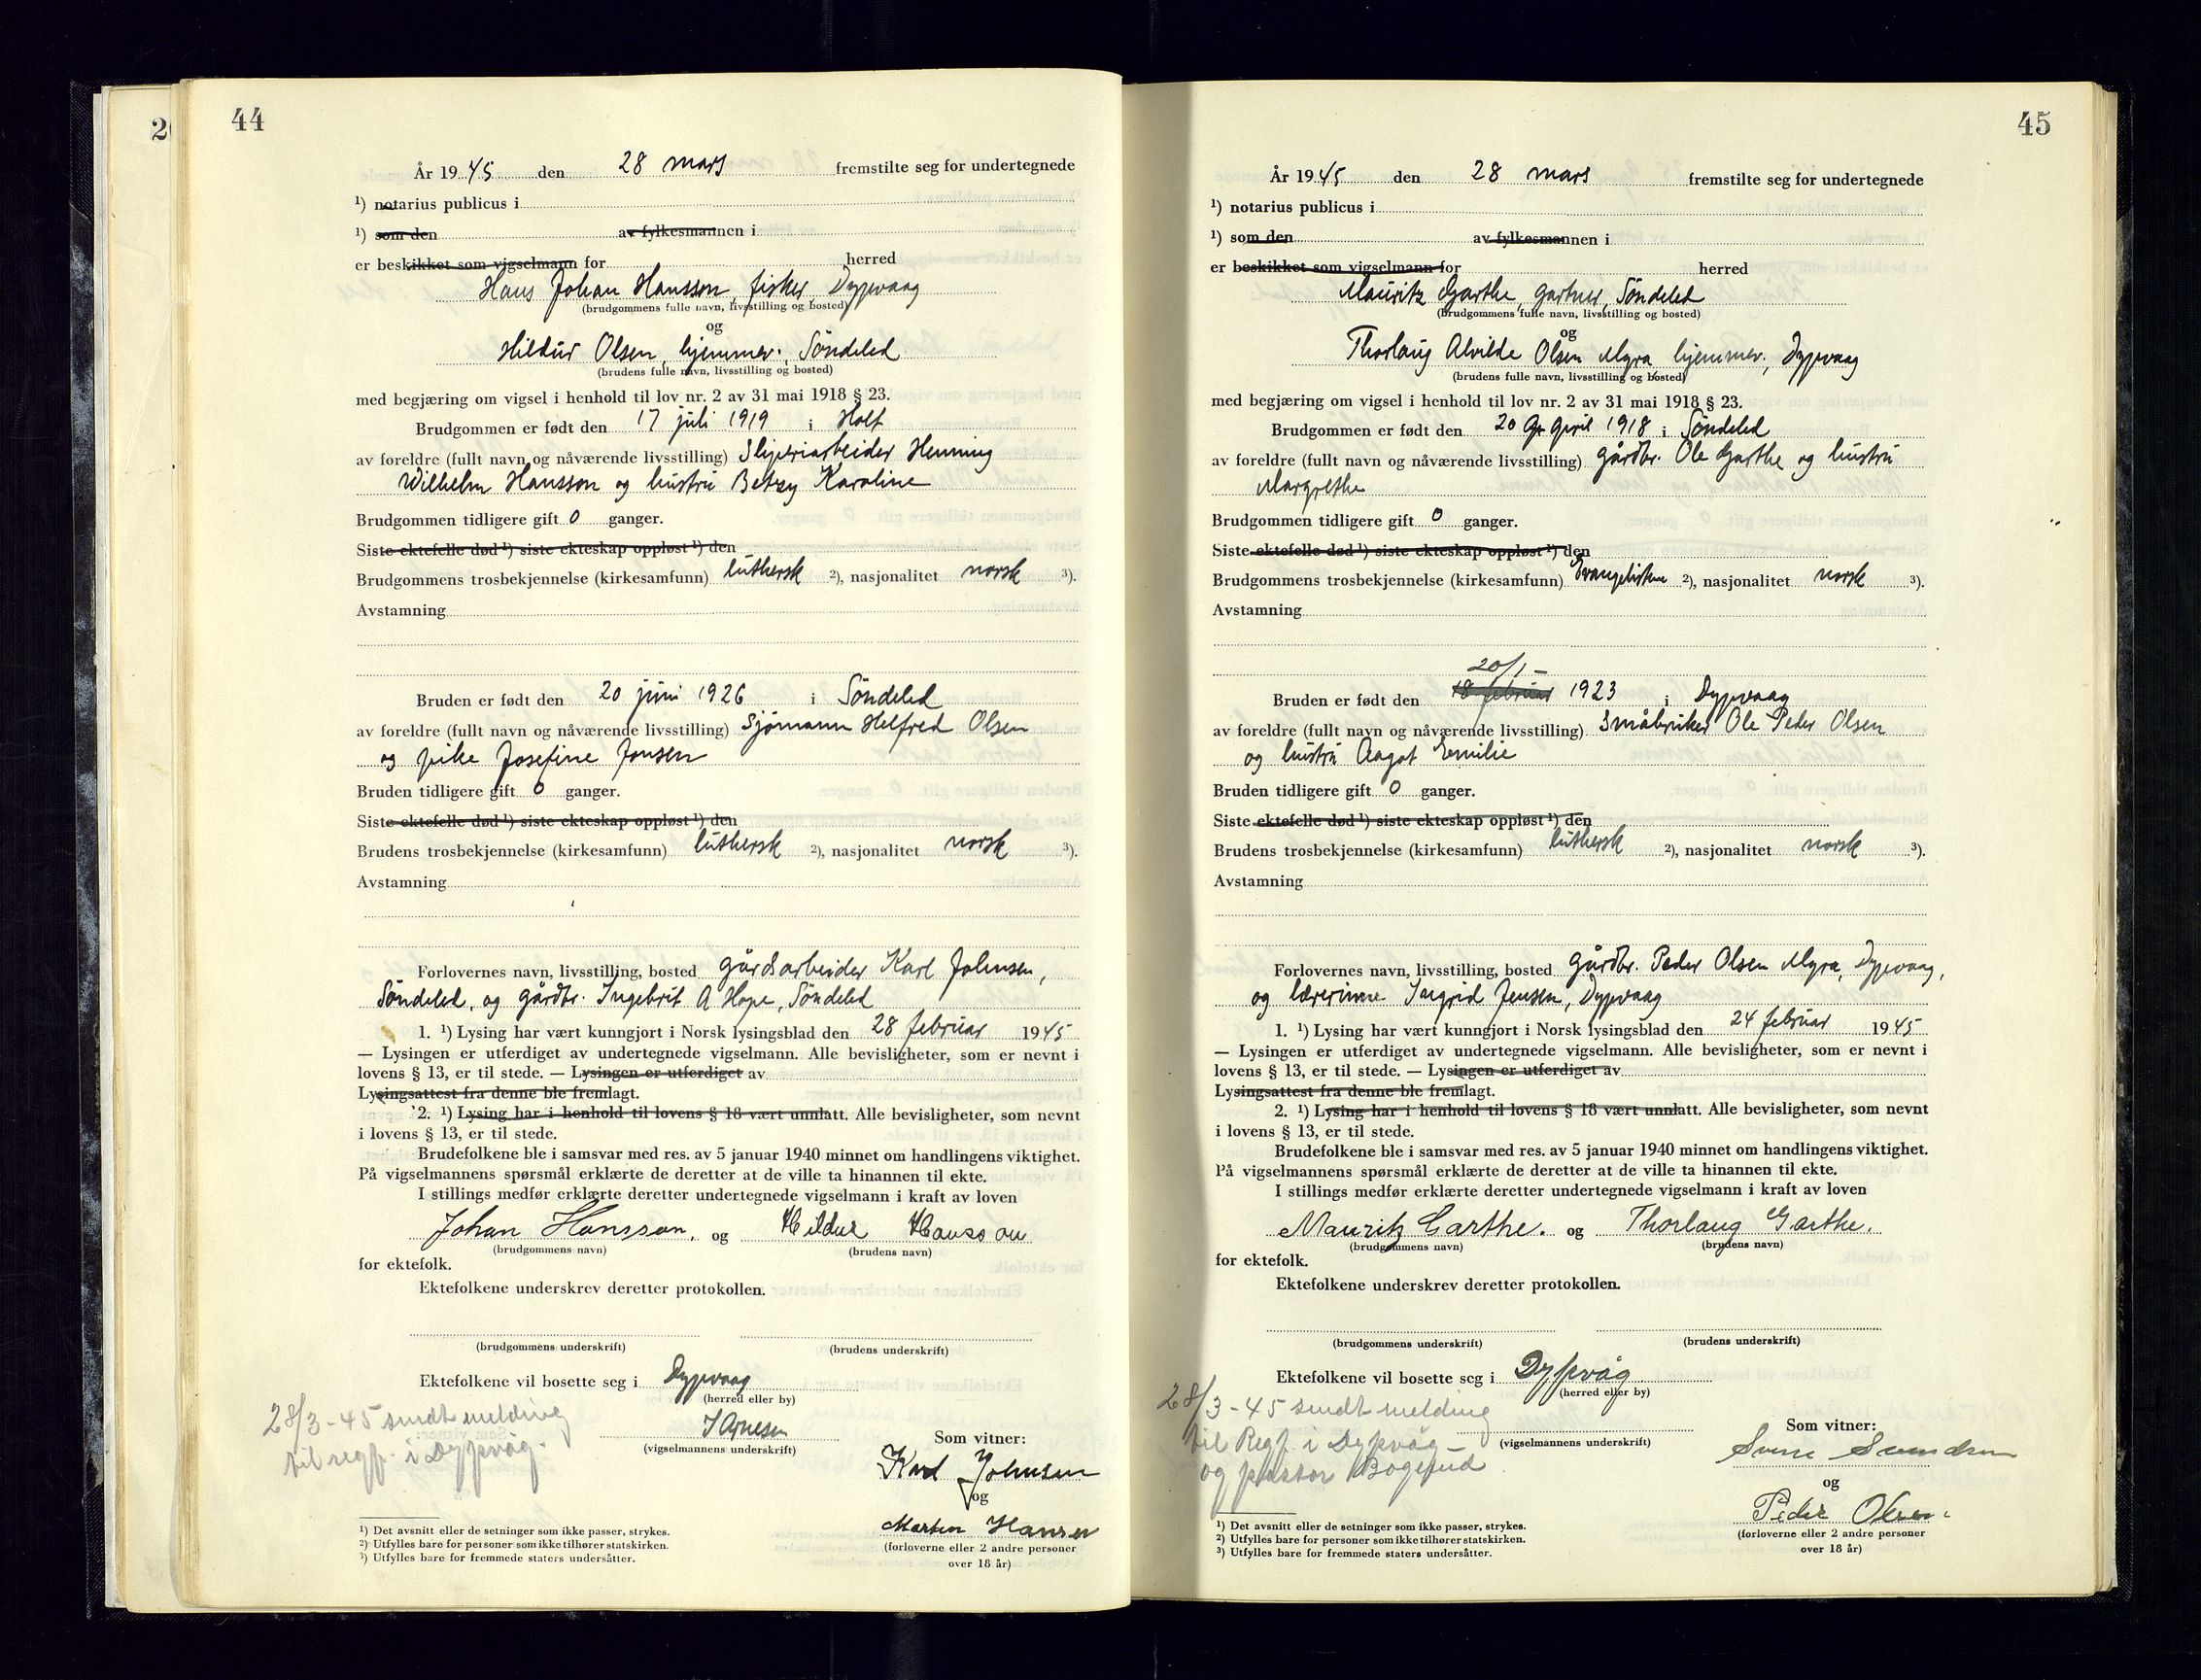 44
År 1945 den 28 mars fremstilte seg for undertegnede
¹) notarius publicus i
¹) som den av fylkesmannen i
er beskikket som vigselmann for herred
Hans Johan Hansson, fisker, Dypvaag
(brudgommens fulle navn, livsstilling og bosted)
og
Hildur Olsen, hjemmev., Söndeled
(brudens fulle navn, livsstilling og bosted)
med begjæring om vigsel i henhold til lov nr. 2 av 31 mai 1918 § 23.
Brudgommen er født den 17 juli 1919 i Holt
av foreldre (fullt navn og nåværende livsstilling) Sliperiarbeider Henning
Wilhelm Hansson og hustru Betzy Karoline
Brudgommen tidligere gift 0 ganger.
Siste ektefelle død ¹) siste ekteskap oppløst ¹) den
Brudgommens trosbekjennelse (kirkesamfunn) luthersk ²), nasjonalitet norsk ³).
Avstamning
Bruden er født den 20 juni 1926 i Söndeled
av foreldre (fullt navn og nåværende livsstilling) Sjömann Helfred Olsen
og pike Josefine Jensen
Bruden tidligere gift 0 ganger.
Siste ektefelle død ¹) siste ekteskap oppløst ¹) den
Brudens trosbekjennelse (kirkesamfunn) luthersk ²), nasjonalitet norsk ³).
Avstamning
Forlovernes navn, livsstilling, bosted gårdsarbeider Karl Johnsen,
Söndeled, og gårdbr. Ingebrit A Hope, Söndeled
1. ¹) Lysing har vært kunngjort i Norsk lysingsblad den 28 februar 1945
— Lysingen er utferdiget av undertegnede vigselmann. Alle bevisligheter, som er nevnt i
lovens § 13, er til stede. — Lysingen er utferdiget av
Lysingsattest fra denne ble fremlagt.
2. ¹) Lysing har i henhold til lovens § 18 vært unnlatt. Alle bevisligheter, som nevnt
i lovens § 13, er til stede.
Brudefolkene ble i samsvar med res. av 5 januar 1940 minnet om handlingens viktighet.
På vigselmannens spørsmål erklærte de deretter at de ville ta hinannen til ekte.
I stillings medfør erklærte deretter undertegnede vigselmann i kraft av loven
Johan Hansson, og Hildur Hansson
(brudgommens navn) (brudens navn)
for ektefolk.
Ektefolkene underskrev deretter protokollen.
(brudgommens underskrift) (brudens underskrift)
Ektefolkene vil bosette seg i Dypvaag
(herred eller by)
28/3 - 45 sendt melding
til regf. i Dypvåg.
(vigselmannens underskrift)
Som vitner:
Karl Johnsen
og
Marten Hansen
(forloverne eller 2 andre personer
over 18 år)
¹) Det avsnitt eller de setninger som ikke passer, strykes.
²) Utfylles bare for personer som ikke tilhører statskirken.
³) Utfylles bare for fremmede staters undersåtter.
45
År 1945 den 28 mars fremstilte seg for undertegnede
¹) notarius publicus i
¹) som den av fylkesmannen i
er beskikket som vigselmann for herred
Mauritz Garthe, gartner, Söndeled
(brudgommens fulle navn, livsstilling og bosted)
og
Thorlaug Alvilde Olsen Myra hjemmev., Dypvaag
(brudens fulle navn, livsstilling og bosted)
med begjæring om vigsel i henhold til lov nr. 2 av 31 mai 1918 § 23.
Brudgommen er født den 20 april 1918 i Söndeled
av foreldre (fullt navn og nåværende livsstilling) gårdbr. Ole Garthe og hustru
Margrethe
Brudgommen tidligere gift 0 ganger.
Siste ektefelle død ¹) siste ekteskap oppløst ¹) den
Brudgommens trosbekjennelse (kirkesamfunn) ²), nasjonalitet norsk ³).
Avstamning
20/1 -
Bruden er født den 18 februar 1923 i Dypvaag
av foreldre (fullt navn og nåværende livsstilling) Småbruker Ole Peder Olsen
og hustru Aagot Emilie
Bruden tidligere gift 0 ganger.
Siste ektefelle død ¹) siste ekteskap oppløst ¹) den
Brudens trosbekjennelse (kirkesamfunn) luthersk ²), nasjonalitet norsk ³).
Avstamning
Forlovernes navn, livsstilling, bosted gårdbr. Peder Olsen Myra, Dypvaag,
og lærerinne Ingrid Jensen, Dypvaag
1. ¹) Lysing har vært kunngjort i Norsk lysingsblad den 24 februar 1945
— Lysingen er utferdiget av undertegnede vigselmann. Alle bevisligheter, som er nevnt i
lovens § 13, er til stede. — Lysingen er utferdiget av
Lysingsattest fra denne ble fremlagt.
2. ¹) Lysing har i henhold til lovens § 18 vært unnlatt. Alle bevisligheter, som nevnt
i lovens § 13, er til stede.
Brudefolkene ble i samsvar med res. av 5 januar 1940 minnet om handlingens viktighet.
På vigselmannens spørsmål erklærte de deretter at de ville ta hinannen til ekte.
I stillings medfør erklærte deretter undertegnede vigselmann i kraft av loven
Mauritz Garthe. og Thorlaug Garthe.
(brudgommens navn) (brudens navn)
for ektefolk.
Ektefolkene underskrev deretter protokollen.
(brudgommens underskrift) (brudens underskrift)
Ektefolkene vil bosette seg i Dypvåg
(herred eller by)
28/3 - 45 sendt melding
til Regf. i Dypvåg -
og pastor
(vigselmannens underskrift)
Som vitner:
og
Peder Olsen
(forloverne eller 2 andre personer
over 18 år)
¹) Det avsnitt eller de setninger som ikke passer, strykes.
²) Utfylles bare for personer som ikke tilhører statskirken.
³) Utfylles bare for fremmede staters undersåtter.